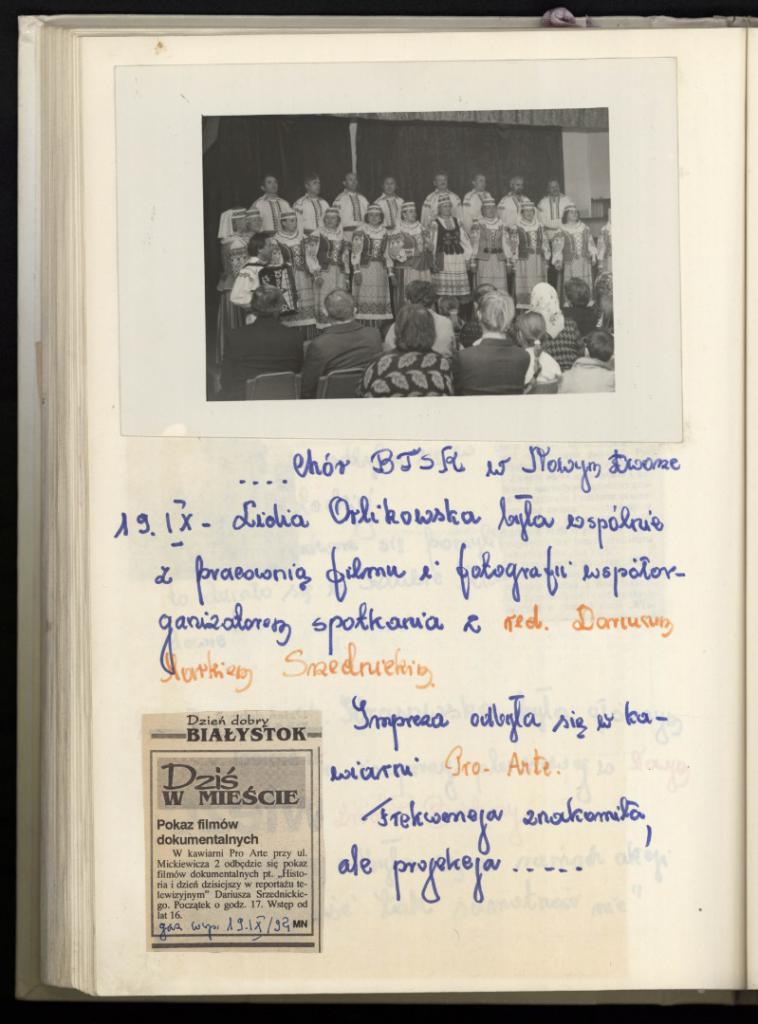 .... Chór BTSK w Nowym Dworze
19. IX - Lidia Orlikowska była wspólnie
z pracownią filmu i fotografii współor-
ganizatorem spotkania z red. Dariuszem
Markiem Srzednickim.
Impreza odbyła się w ka-
wiarni Pro-Arte.
Frekwencja znakomita,
ale projekcja ......
Dzień dobry
BIAŁYSTOK
Dziś
W MIEŚCIE
Pokaz filmów
dokumentalnych
W kawiarni Pro Arte przy ul.
Mickiewicza 2 odbędzie się pokaz
filmów dokumentalnych pt. „Histo-
ria i dzień dzisiejszy w reportażu te-
lewizyjnym" Dariusza Srzednickie-
go. Początek o godz. 17. Wstęp od
lat 16.
MN
gaz. wyb. 19.IX/92